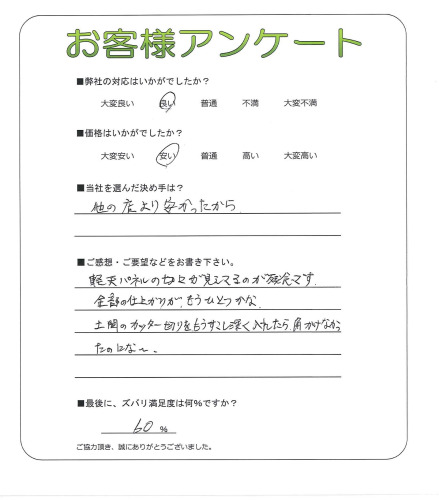 お客様アンケート
■弊社の対応はいかがでしたか？
大変良い 良い 普通 不満 大変不満
■価格はいかがでしたか？
大変安い 安い 普通 高い 大変高い
■当社を選んだ決め手は？
他の店より安かったから
■ご感想・ご要望などをお書き下さい。
軽天パネルの切口が見えてるのが残念です.
全部の仕上がりが、もうひとつかな.
土間のカッター切りをもうすこし深く入れたら、角かけなかっ
たのにな～.
■最後に、ズバリ満足度は何%ですか？
60 %
ご協力頂き、誠にありがとうございました。